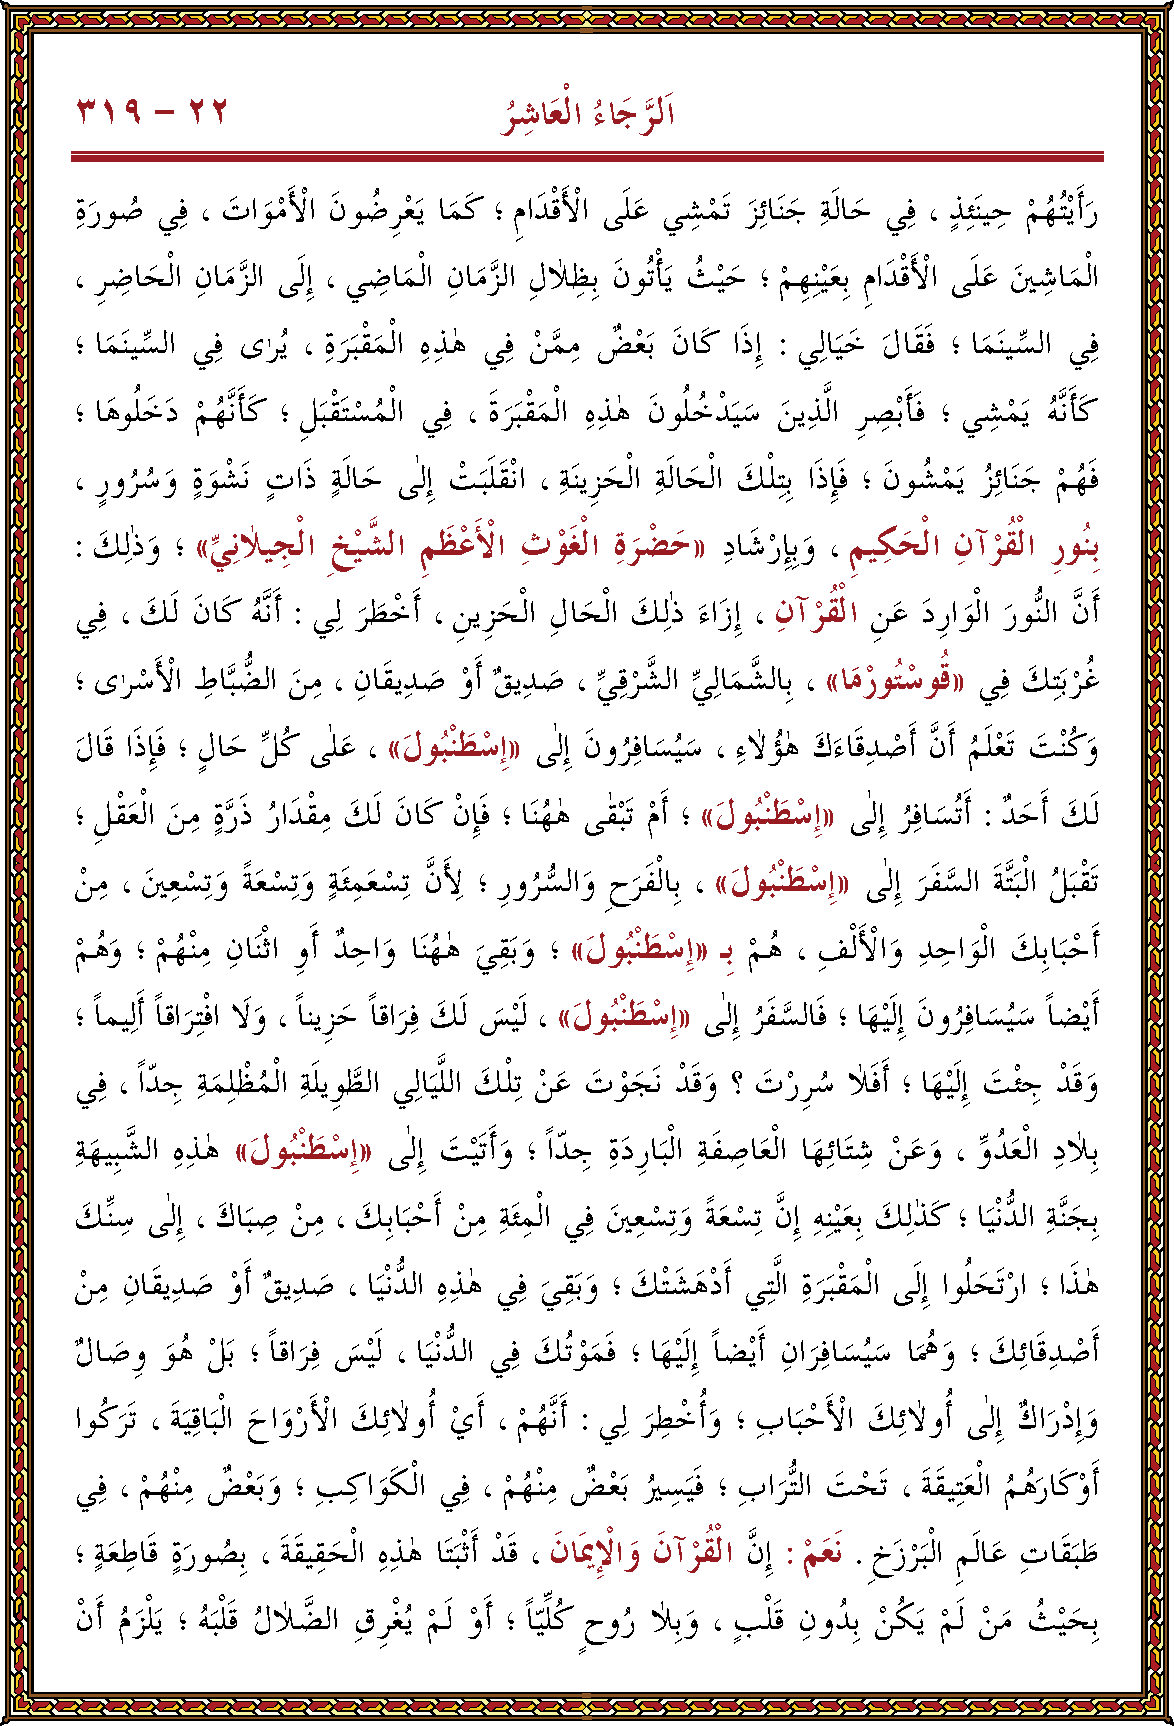 اَلرَّجَاءُ الْعَاشِرُ ٢٢ - ٣١٩
رَأَيْتُهُمْ حِينَئِذٍ ، فِي حَالَةِ جَنَائِزَ تَمْشِي عَلَى الْأَقْدَامِ ؛ كَمَا يَعْرِضُونَ الْأَمْوَاتَ ، فِي صُورَةِ
الْمَاشِينَ عَلَى الْأَقْدَامِ بِعَيْنِهِمْ ؛ حَيْثُ يَأْتُونَ بِظِلَالِ الزَّمَانِ الْمَاضِي ، إِلَى الزَّمَانِ الْحَاضِرِ ،
فِي السِّينَمَا ؛ فَقَالَ خَيَالِي : إِذَا كَانَ بَعْضٌ مِمَّنْ فِي هٰذِهِ الْمَقْبَرَةِ ، يُرٰى فِي السِّينَمَا ؛
كَأَنَّهُ يَمْشِي ؛ فَأَبْصِرِ الَّذِينَ سَيَدْخُلُونَ هٰذِهِ الْمَقْبَرَةَ ، فِي الْمُسْتَقْبَلِ ؛ كَأَنَّهُمْ دَخَلُوهَا ؛
فَهُمْ جَنَائِزُ يَمْشُونَ ؛ فَإِذَا بِتِلْكَ الْحَالَةِ الْحَزِينَةِ ، انْقَلَبَتْ إِلٰى حَالَةٍ ذَاتٍ نَشْوَةٍ وَسُرُورٍ ،
بِنُورِ الْقُرْآنِ الْحَكِيمِ ، وَبِإِرْشَادِ «حَضْرَةِ الْغَوْثِ الْأَعْظَمِ الشَّيْخِ الْجِيلَانِيِّ» ؛ وَذٰلِكَ :
أَنَّ النُّورَ الْوَارِدَ عَنِ الْقُرْآنِ ، إِزَاءَ ذٰلِكَ الْحَالِ الْحَزِينِ ، أَخْطَرَ لِي : أَنَّهُ كَانَ لَكَ ، فِي
غُرْبَتِكَ فِي «قُوسْتُورْمَا» ، بِالشَّمَالِيِّ الشَّرْقِيِّ ، صَدِيقٌ أَوْ صَدِيقَانِ ، مِنَ الضُّبَّاطِ الْأَسْرٰى ؛
وَكُنْتَ تَعْلَمُ أَنَّ أَصْدِقَاءَكَ هٰؤُلَاءِ ، سَيُسَافِرُونَ إِلٰى «إِسْطَنْبُولَ» ، عَلٰى كُلِّ حَالٍ ؛ فَإِذَا قَالَ
لَكَ أَحَدٌ : أَتُسَافِرُ إِلٰى «إِسْطَنْبُولَ» ؛ أَمْ تَبْقٰى هٰهُنَا ؛ فَإِنْ كَانَ لَكَ مِقْدَارُ ذَرَّةٍ مِنَ الْعَقْلِ ؛
تَقْبَلُ الْبَتَّةَ السَّفَرَ إِلٰى «إِسْطَنْبُولَ» ، بِالْفَرَحِ وَالسُّرُورِ ؛ لِأَنَّ تِسْعَمِئَةٍ وَتِسْعَةً وَتِسْعِينَ ، مِنْ
أَحْبَابِكَ الْوَاحِدِ وَالْأَلْفِ ، هُمْ بِـ «إِسْطَنْبُولَ» ؛ وَبَقِيَ هٰهُنَا وَاحِدٌ أَوِ اثْنَانِ مِنْهُمْ ؛ وَهُمْ
أَيْضاً سَيُسَافِرُونَ إِلَيْهَا ؛ فَالسَّفَرُ إِلٰى «إِسْطَنْبُولَ» ، لَيْسَ لَكَ فِرَاقاً حَزِيناً ، وَلَا افْتِرَاقاً أَلِيماً ؛
وَقَدْ جِئْتَ إِلَيْهَا ؛ أَفَلَا سُرِرْتَ ؟ وَقَدْ نَجَوْتَ عَنْ تِلْكَ اللَّيَالِي الطَّوِيلَةِ الْمُظْلِمَةِ جِدّاً ، فِي
بِلَادِ الْعَدُوِّ ، وَعَنْ شِتَائِهَا الْعَاصِفَةِ الْبَارِدَةِ جِدّاً ؛ وَأَتَيْتَ إِلٰى «إِسْطَنْبُولَ» هٰذِهِ الشَّبِيهَةِ
بِجَنَّةِ الدُّنْيَا ؛ كَذٰلِكَ بِعَيْنِهِ إِنَّ تِسْعَةً وَتِسْعِينَ فِي الْمِئَةِ مِنْ أَحْبَابِكَ ، مِنْ صِبَاكَ ، إِلٰى سِنِّكَ
هٰذَا ؛ ارْتَحَلُوا إِلَى الْمَقْبَرَةِ الَّتِي أَدْهَشَتْكَ ؛ وَبَقِيَ فِي هٰذِهِ الدُّنْيَا ، صَدِيقٌ أَوْ صَدِيقَانِ مِنْ
أَصْدِقَائِكَ ؛ وَهُمَا سَيُسَافِرَانِ أَيْضاً إِلَيْهَا ؛ فَمَوْتُكَ فِي الدُّنْيَا ، لَيْسَ فِرَاقاً ؛ بَلْ هُوَ وِصَالٌ
وَإِدْرَاكٌ إِلٰى أُولَائِكَ الْأَحْبَابِ ؛ وَأُخْطِرَ لِي : أَنَّهُمْ ، أَيْ أُولَائِكَ الْأَرْوَاحَ الْبَاقِيَةَ ، تَرَكُوا
أَوْكَارَهُمُ الْعَتِيقَةَ ، تَحْتَ التُّرَابِ ؛ فَيَسِيرُ بَعْضٌ مِنْهُمْ ، فِي الْكَوَاكِبِ ؛ وَبَعْضٌ مِنْهُمْ ، فِي
طَبَقَاتِ عَالَمِ الْبَرْزَخِ . نَعَمْ : إِنَّ الْقُرْآنَ وَالْإِيمَانَ ، قَدْ أَثْبَتَا هٰذِهِ الْحَقِيقَةَ ، بِصُورَةٍ قَاطِعَةٍ ؛
بِحَيْثُ مَنْ لَمْ يَكُنْ بِدُونِ قَلْبٍ ، وَبِلَا رُوحٍ كُلِّيّاً ؛ أَوْ لَمْ يُغْرِقِ الضَّلَالُ قَلْبَهُ ؛ يَلْزَمُ أَنْ